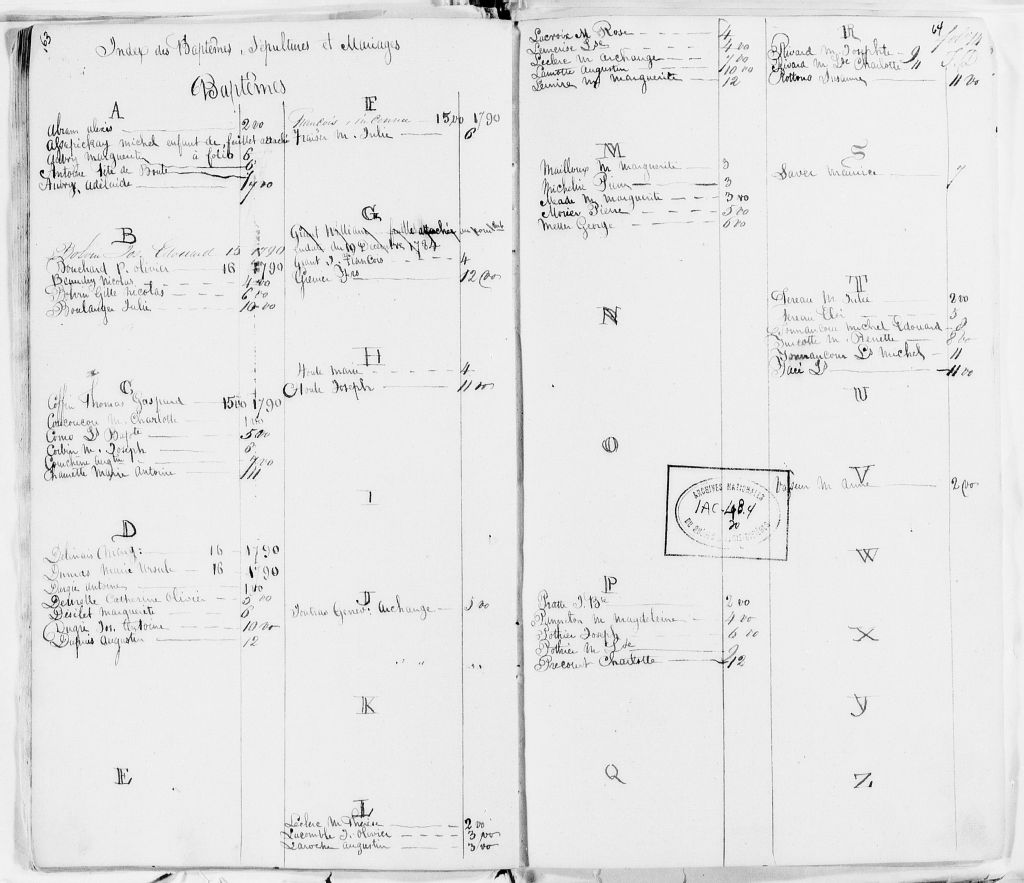 63
Index des Baptêmes, Sépultures et Mariages
Baptêmes
A
Abram Alexis 2 vo
Michel enfant de, feuillet attaché
Aubry Marguerite à folio 6
Antoine fils de Boute 6
Aubry Adélaide 7 vo
B
Boivin Jos. Edouard 15 1790
Bouchard P. Olivier 16 1790
Beaudry Nicolas 4 vo
Boivin Gille Nicolas 6 vo
Boulanger Julie 10 vo
C
Coffin Thomas Gaspard 15 vo 1790
Coucoucou M. Charlotte 1 vo
Como Ls Bapte 5 vo
Corbin M. Joseph 6
Couchène Augtin 7 vo
Chamette Marie Antoine 11
D
16 1790
Dumas Marie Ursule 16 1790
Antoine 1 vo
Catherine Olivier 5 vo
Désilet Marguerite 6
Dugré Jos. Antoine 10 vo
Dupuis Augustin 12
E
F
François 15 vo 1790
Fraiser M. Julie 6
G
Grant William feuille attachée au
1784
Grant J. François 4
Grenier Frs 12 vo
H
Houle Marie 4
Houle Joseph 11 vo
I
J
Jentras Genev: Archange 5 vo
" "
K
L
Leclerc M. Thérèse 2 vo
Lacombe J. Olivier 3 vo
Laroche Augustin 3 vo
Lacroix M. Rose 4
Lemerise Lse 4 vo
Leclerc M Archange 7 vo
Lamotte Augustin 10 vo
Lemire M. Marguerite 12
M
Mailloux M. Marguerite 3
Micheline Pierre 3
Meade M. Marguerite 3 vo
Morier Pierre 5 vo
George 6 vo
N
O
ARCHIVES NATIONALES
1AC-48.4
30
P
Pratte J. Bte 2 vo
M Magdeleine 4 vo
Pothier Joseph 6 vo
Pothier M. Lse 9
Précourt Charlotte 12
Q
64
R
Rivard M. Josephte 9
Rivard M. Lse Charlotte 11
Rottono Susanne 11 vo
S
Saver Maurice 7
T
Tereau M. Julie 2 vo
Tereau Eloi 3
Tonnancour Michel Edouard 8
Turcotte M. 8 vo
Tonnancour Ls Michel 11
Ls 11 vo
U
V
M Anne 2 vo
W
X
Y
Z